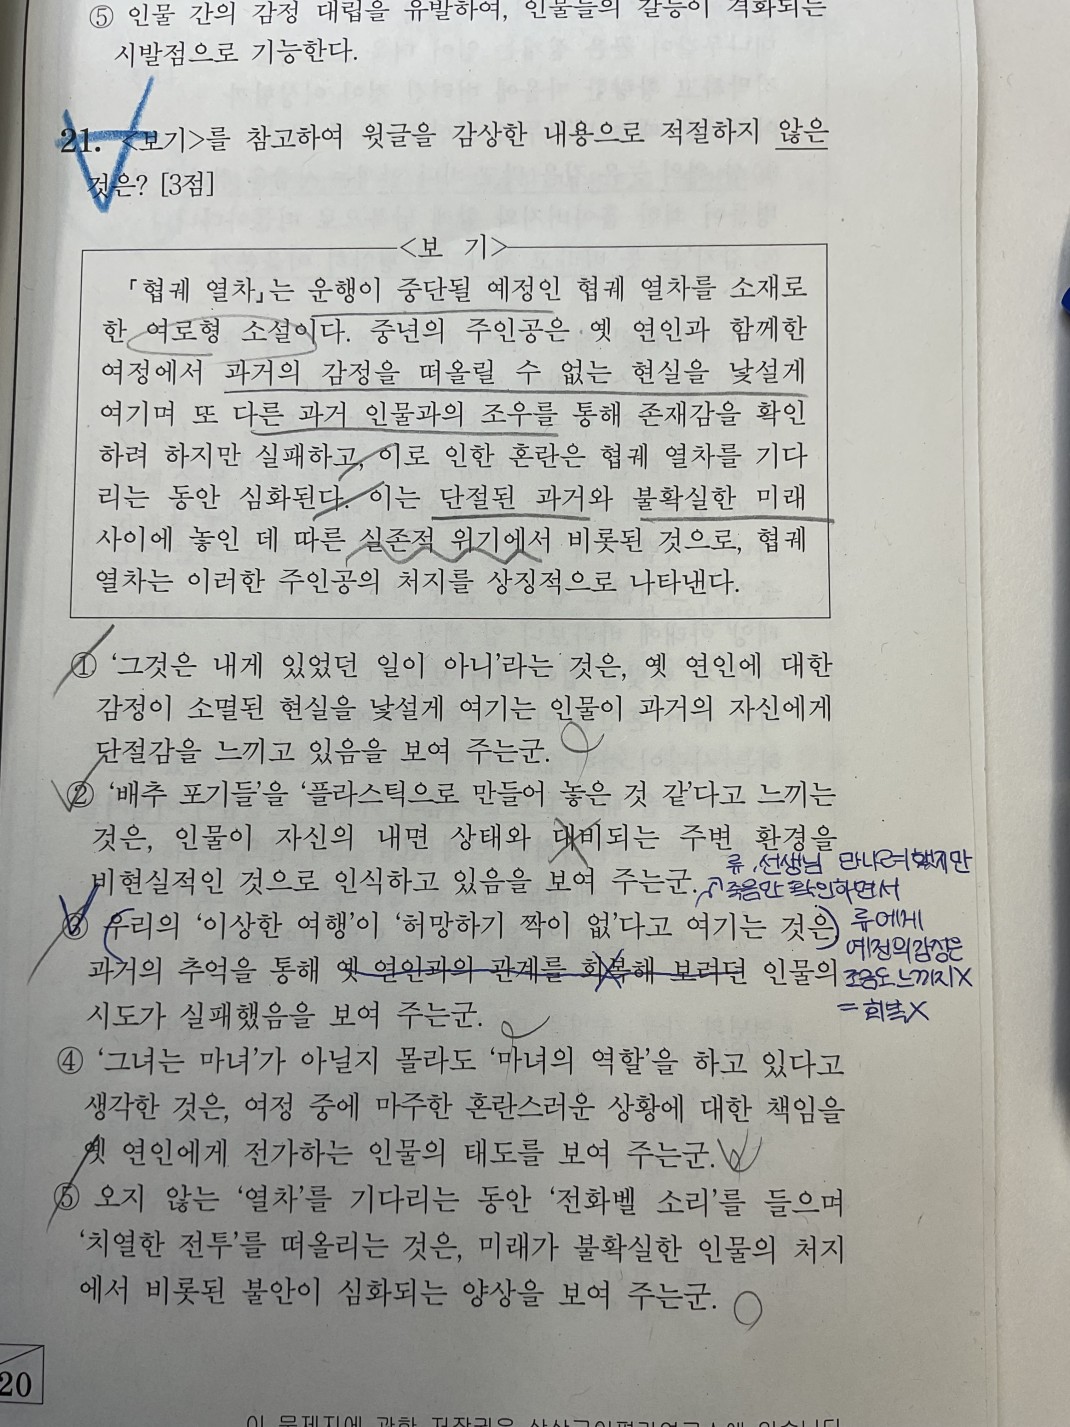 ⑤ 인물 간의 감정 대립을 유발하여, 인물들의 갈등이 격화되는
시발점으로 기능한다.
21. <보기>를 참고하여 윗글을 감상한 내용으로 적절하지 않은
것은? [3점]
<보 기>
「협궤 열차」는 운행이 중단될 예정인 협궤 열차를 소재로
한 여로형 소설이다. 중년의 주인공은 옛 연인과 함께한
여정에서 과거의 감정을 떠올릴 수 없는 현실을 낯설게
여기며 또 다른 과거 인물과의 조우를 통해 존재감을 확인
하려 하지만 실패하고, 이로 인한 혼란은 협궤 열차를 기다
리는 동안 심화된다. 이는 단절된 과거와 불확실한 미래
사이에 놓인 데 따른 실존적 위기에서 비롯된 것으로, 협궤
열차는 이러한 주인공의 처지를 상징적으로 나타낸다.
① ‘그것은 내게 있었던 일이 아니’라는 것은, 옛 연인에 대한
감정이 소멸된 현실을 낯설게 여기는 인물이 과거의 자신에게
단절감을 느끼고 있음을 보여 주는군.
② ‘배추 포기들’을 ‘플라스틱으로 만들어 놓은 것 같’다고 느끼는
것은, 인물이 자신의 내면 상태와 대비되는 주변 환경을
비현실적인 것으로 인식하고 있음을 보여 주는군.
류, 선생님 만나려 했지만
죽음만 확인하면서
③ 우리의 ‘이상한 여행’이 ‘허망하기 짝이 없’다고 여기는 것은
과거의 추억을 통해 옛 연인과의 관계를 회복해 보려던 인물의
시도가 실패했음을 보여 주는군.
류에게
예전의 감정은
조금도 느끼지 X
= 회복 X
④ ‘그녀는 마녀’가 아닐지 몰라도 ‘마녀의 역할’을 하고 있다고
생각한 것은, 여정 중에 마주한 혼란스러운 상황에 대한 책임을
옛 연인에게 전가하는 인물의 태도를 보여 주는군.
⑤ 오지 않는 ‘열차’를 기다리는 동안 ‘전화벨 소리’를 들으며
‘치열한 전투’를 떠올리는 것은, 미래가 불확실한 인물의 처지
에서 비롯된 불안이 심화되는 양상을 보여 주는군.
20
이 문제지에 관한 저작권은